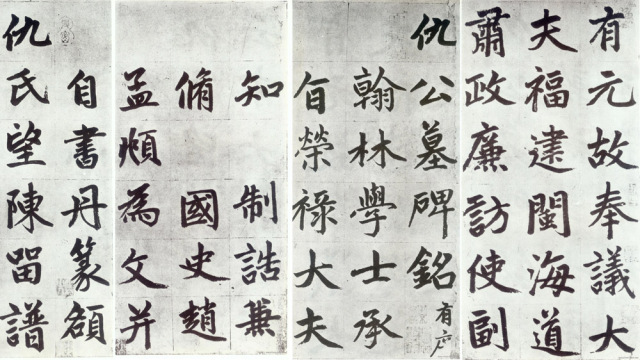 有元故奉議大
夫福建閩海道
肅政廉訪使副
仇公墓碑銘有序
翰林學士承
旨榮祿大夫
知制誥兼
脩國史趙
孟頫為文并
自書丹篆額
仇氏望陳留譜